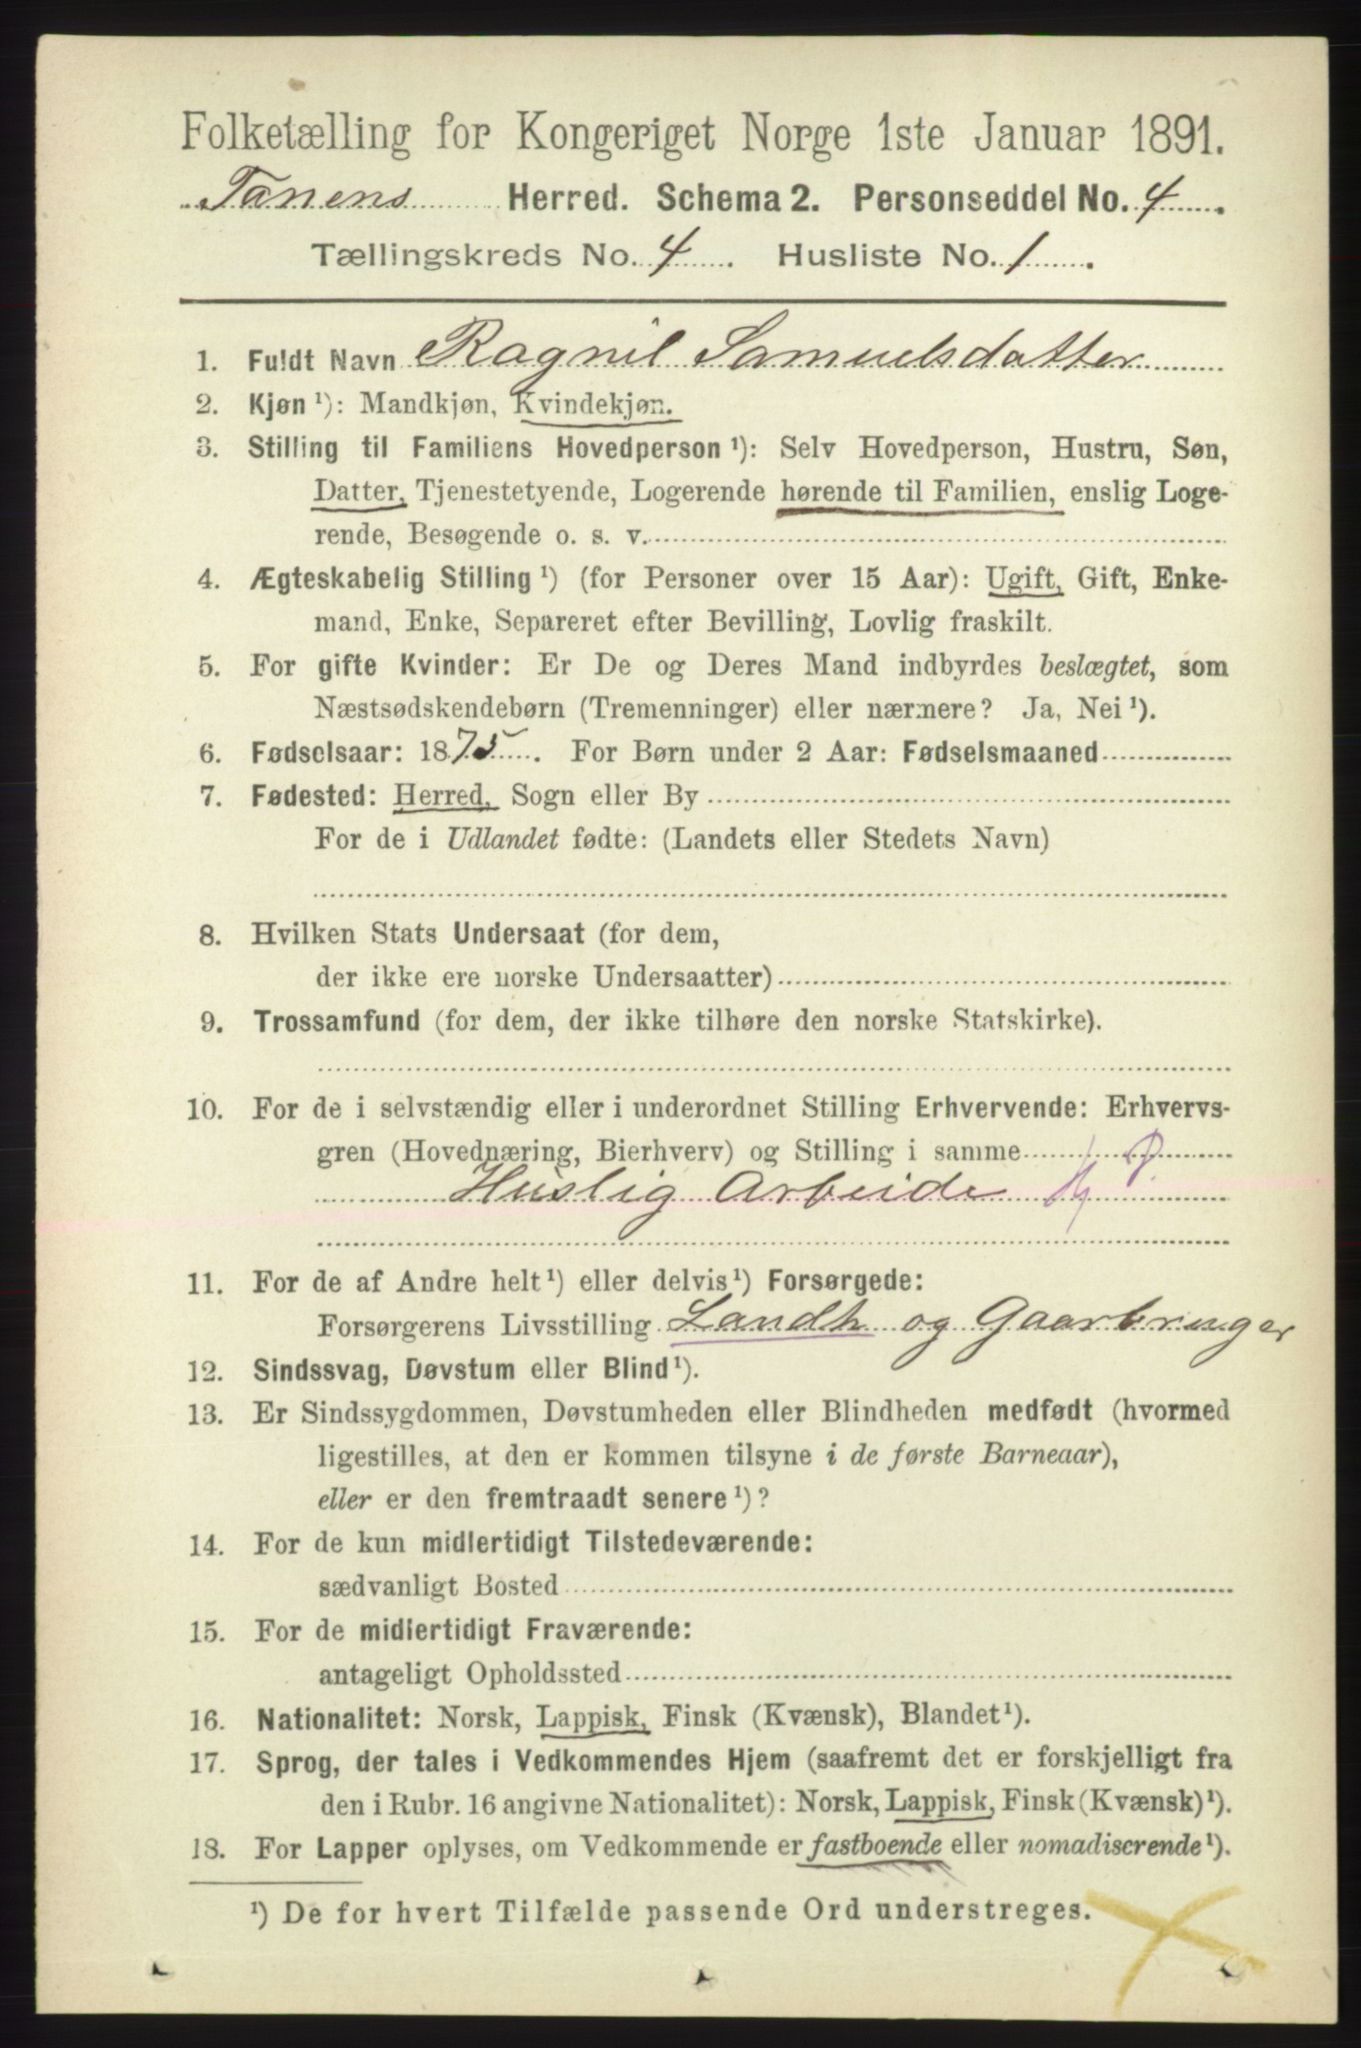 Folketælling for Kongeriget Norge 1ste Januar 1891.
Tanens Herred. Schema 2. Personseddel No. 4.
Tællingskreds No. 4. Husliste No. 1.
1. Fuldt Navn Ragnil Samuelsdatter
2. Kjøn ¹): Mandkjøn, Kvindekjøn.
3. Stilling til Familiens Hovedperson ¹): Selv Hovedperson, Hustru, Søn,
Datter, Tjenestetyende, Logerende hørende til Familien, enslig Loge-
rende, Besøgende o. s. v.
4. Ægteskabelig Stilling ¹) (for Personer over 15 Aar): Ugift, Gift, Enke-
mand, Enke, Separeret efter Bevilling, Lovlig fraskilt.
5. For gifte Kvinder: Er De og Deres Mand indbyrdes beslægtet, som
Næstsødskendebørn (Tremenninger) eller nærmere? Ja, Nei ¹).
6. Fødselsaar: 1875. For Børn under 2 Aar: Fødselsmaaned
7. Fødested: Herred, Sogn eller By
For de i Udlandet fødte: (Landets eller Stedets Navn)
8. Hvilken Stats Undersaat (for dem,
der ikke ere norske Undersaatter)
9. Trossamfund (for dem, der ikke tilhøre den norske Statskirke).
10. For de i selvstændig eller i underordnet Stilling Erhvervende: Erhvervs-
gren (Hovednæring, Bierhverv) og Stilling i samme
Huslig Arbeide
11. For de af Andre helt ¹) eller delvis ¹) Forsørgede:
Forsørgerens Livsstilling Landh og Gaarbruger
12. Sindssvag, Døvstum eller Blind ¹).
13. Er Sindssygdommen, Døvstumheden eller Blindheden medfødt (hvormed
ligestilles, at den er kommen tilsyne i de første Barneaar),
eller er den fremtraadt senere ¹)?
14. For de kun midlertidigt Tilstedeværende:
sædvanligt Bosted
15. For de midlertidigt Fraværende:
antageligt Opholdssted
16. Nationalitet: Norsk, Lappisk, Finsk (Kvænsk), Blandet ¹).
17. Sprog, der tales i Vedkommendes Hjem (saafremt det er forskjelligt fra
den i Rubr. 16 angivne Nationalitet): Norsk, Lappisk, Finsk (Kvænsk) ¹).
18. For Lapper oplyses, om Vedkommende er fastboende eller nomadiserende ¹).
¹) De for hvert Tilfælde passende Ord understreges.